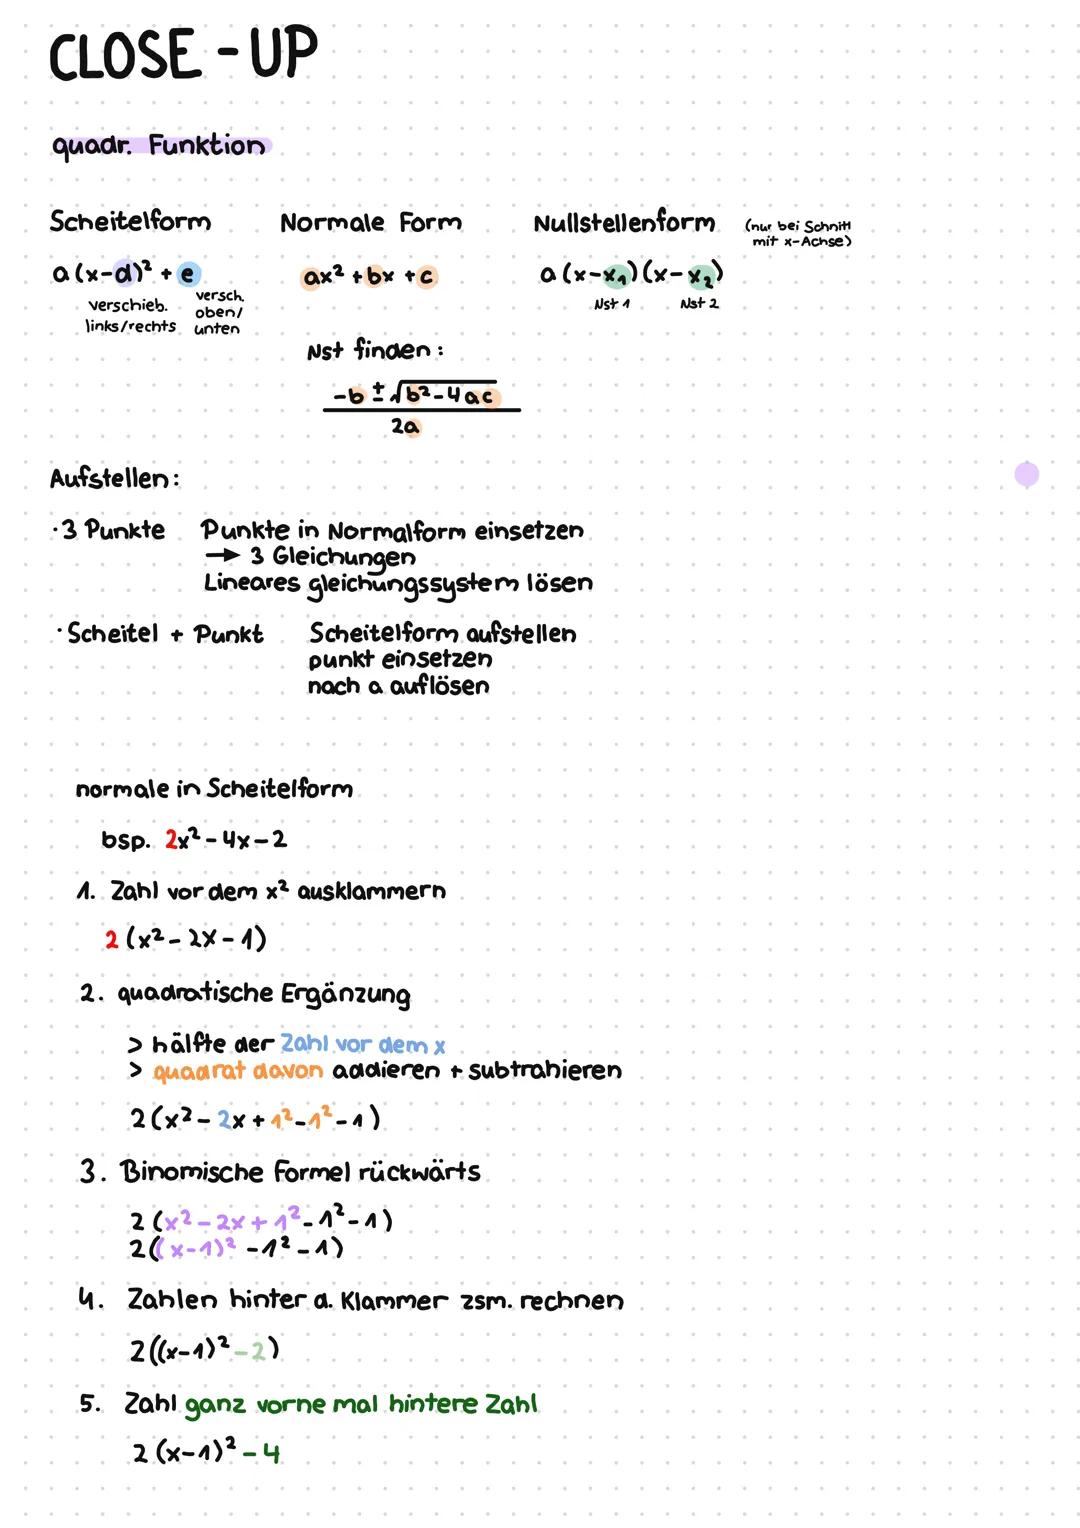 CLOSE - UP
quadr. Funktion
Scheitelform Normale Form Nullstellenform (nur bei Schnitt
mit x-Achse)
a(x-d)² + e ax² + bx + c a(x-x₁)(x-x₂)
verschieb. versch. Nst 1 Nst 2
links/rechts oben/
unten
Nst finden:
-b ± √b²-4ac
2a
Aufstellen:
·3 Punkte Punkte in Normalform einsetzen
→ 3 Gleichungen
Lineares gleichungssystem lösen
·Scheitel + Punkt Scheitelform aufstellen
punkt einsetzen
nach a auflösen
normale in Scheitelform
bsp. 2x² - 4x - 2
1. Zahl vor dem x² ausklammern
2 (x² - 2x - 1)
2. quadratische Ergänzung
> hälfte der Zahl vor dem x
> quadrat davon addieren + subtrahieren
2(x² - 2x + 1² - 1² - 1)
3. Binomische Formel rückwärts
2 (x² - 2x + 1² - 1² - 1)
2((x-1)² - 1² - 1)
4. Zahlen hinter d. Klammer zsm. rechnen
2((x-1)² - 2)
5. Zahl ganz vorne mal hintere Zahl
2 (x-1)² - 4